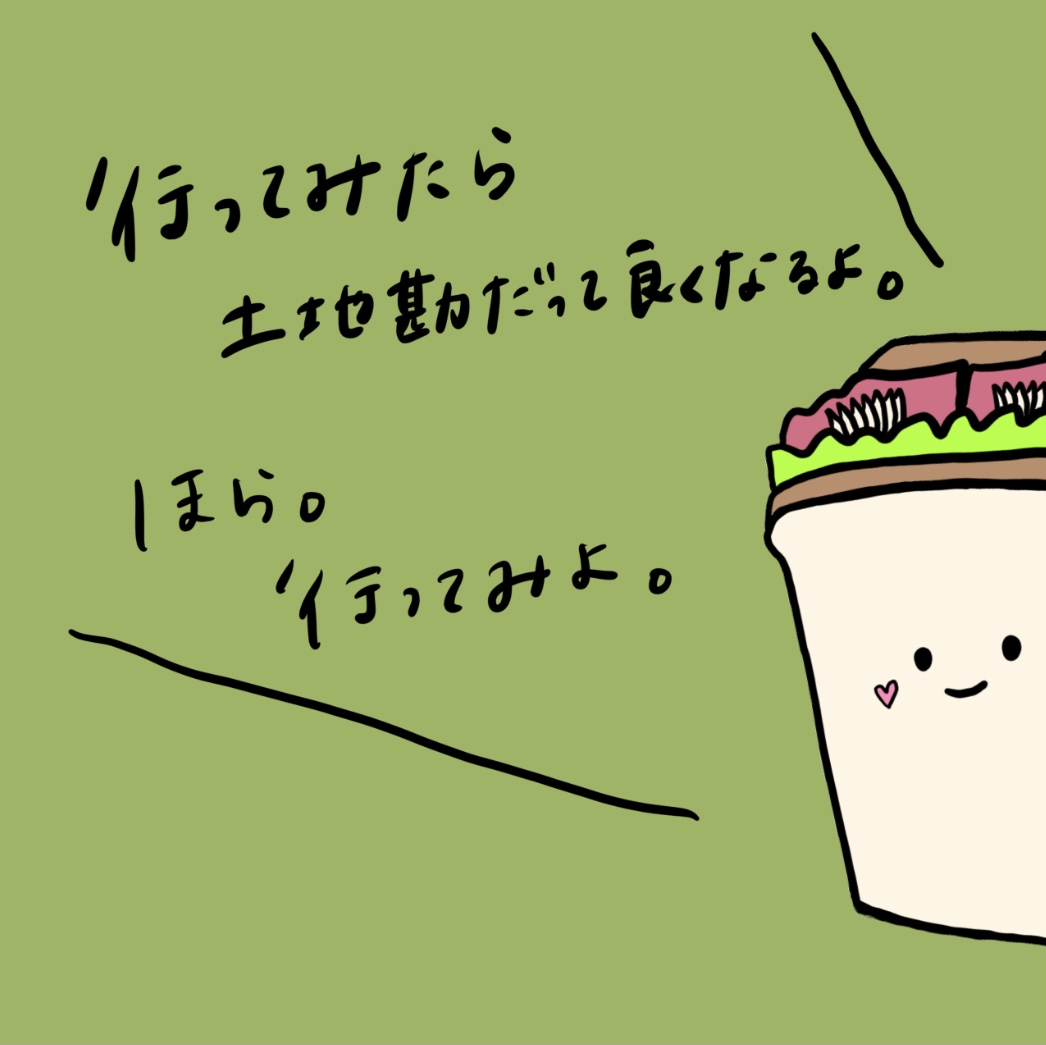 行ってみたら
土地勘だって良くなるよ。
ほら。
行ってみよ。